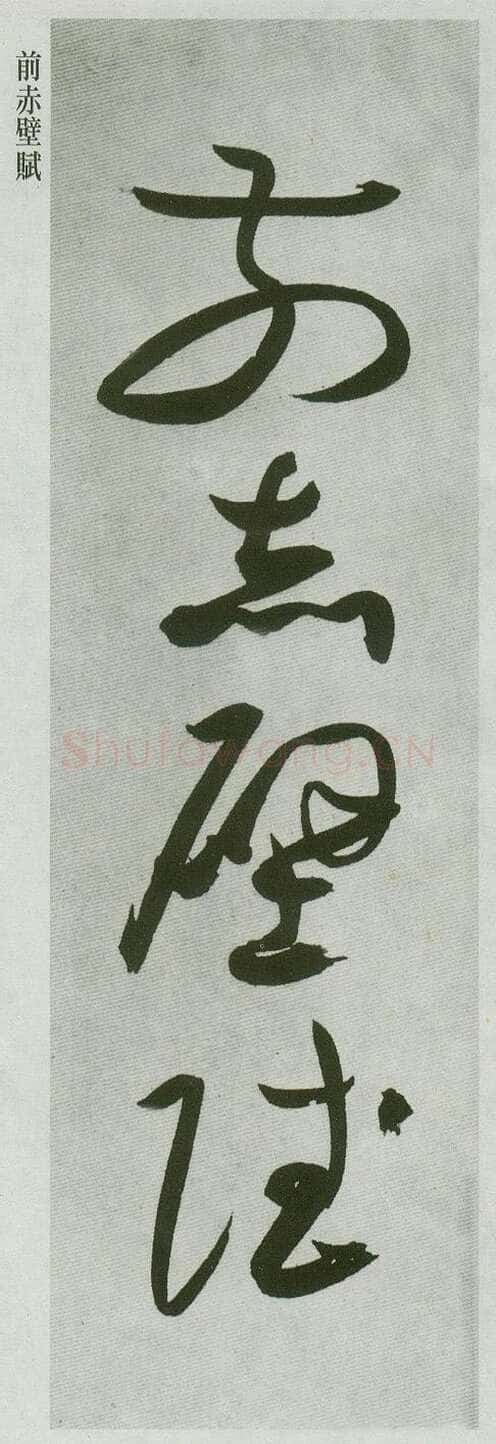 前赤壁賦
前赤壁賦
Shufawang.CN